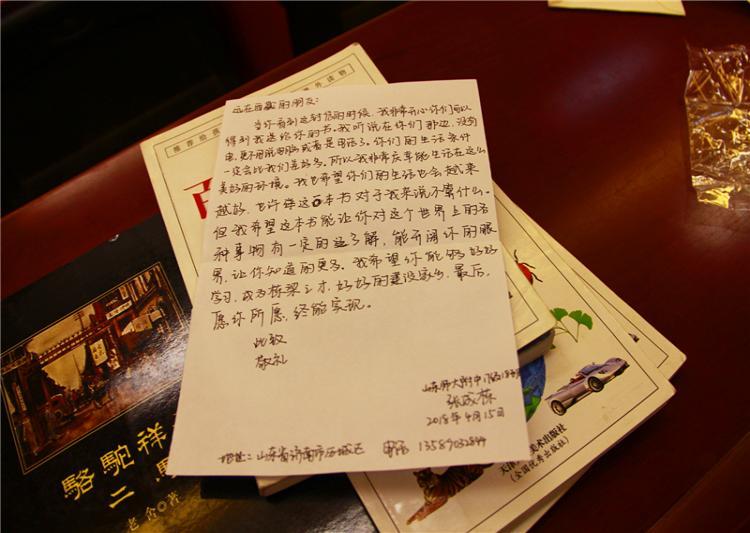 推荐给孩
外读物
百
远在西藏的朋友：
当你看到这封信的时候，我非常开心你们可以
得到我送给你的书。我听说在你们那边，没有
电，更不用说电脑或者是电话了。你们的生活条件
一定会比我们差好多。所以我非常庆幸能生活在这么
美好的环境。我也希望你们的生活也会越来
越好，也许这本书对于我来说不算什么。
但我希望这本书能让你对这个世界上的各
种事物有一定的了解，能开阔你的眼
界，让你知道的更多。我希望你能够好好
学习，成为栋梁之才，好好的建设家乡，最后，
愿你所愿，终能实现。
此致
敬礼
山东师大附中
张成栋
2018年4月15日
地址：山东省济南市历城区 电话 13589032844
駱駝祥
二
老舍◎著
天津
美术出版社
(全国优秀出版社)